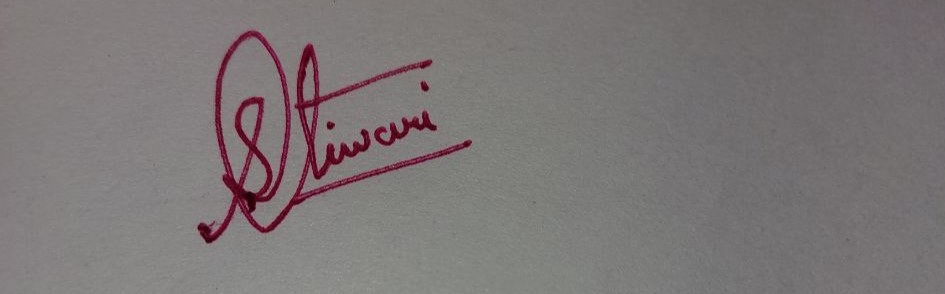 S Tiwari